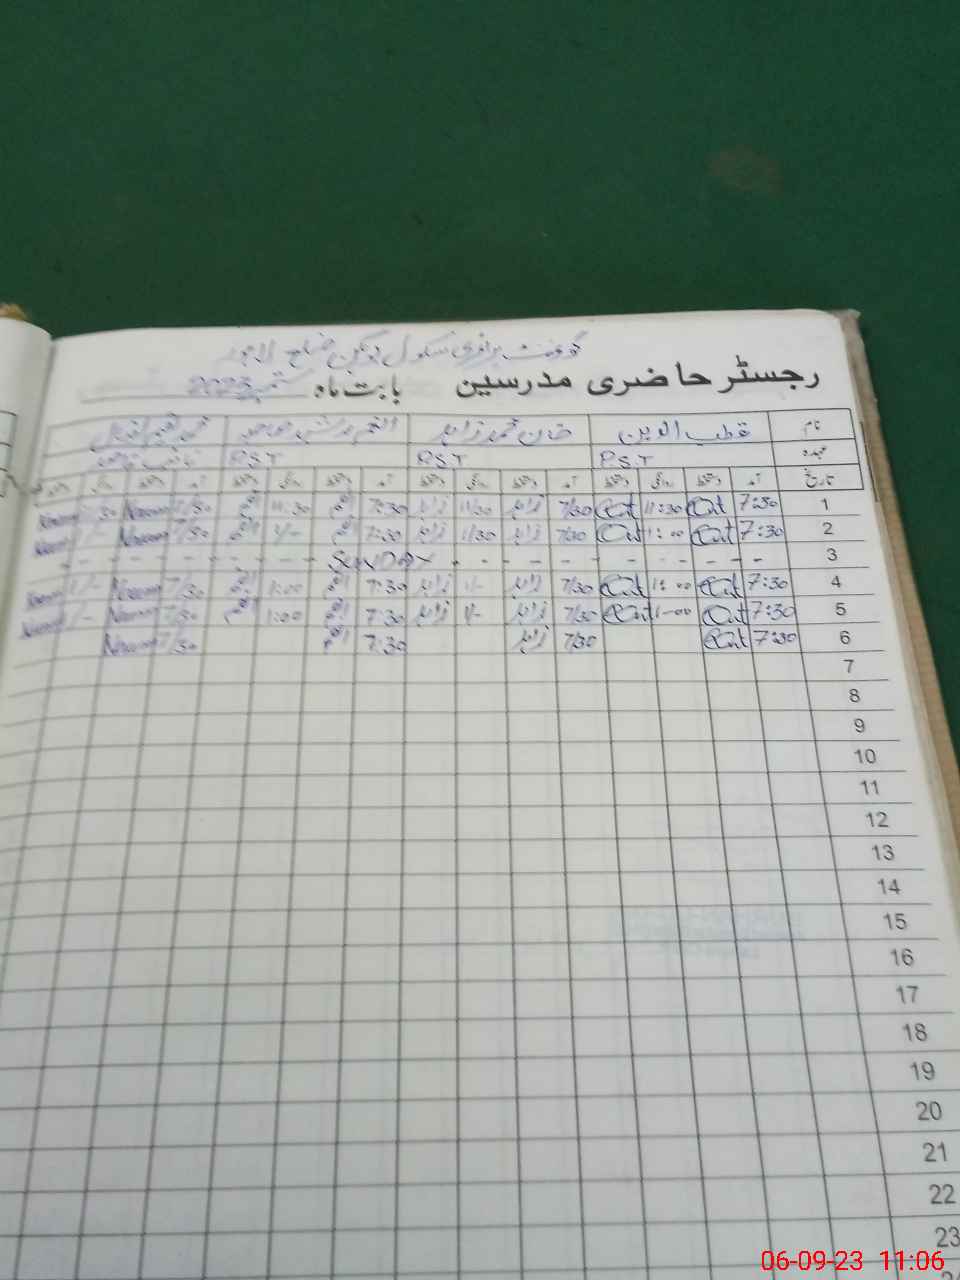 گورنمنٹ پرائمری سکول ضلع
رجسٹر حاضری مدرسین بابت ماہ ستمبر 2023
نام قطب الدین خان محمد زاہد
عہدہ P.S.T P.S.T P.S.T نائب قاصد
تاریخ آمد دستخط روانگی دستخط آمد دستخط روانگی دستخط آمد دستخط روانگی دستخط آمد دستخط روانگی دستخط
1 7:30 11:30 7/30 زاہد 11/30 زاہد 7:30 11:30 7/30 Naeem Naeem
2 7:30 1:00 7/30 زاہد 11/30 زاہد 7:30 1/- 7/30 Naeem 1/- Naeem
3 - - - - - - SUNDAY - - - - -
4 7:30 1:00 7/30 زاہد 1/- زاہد 7:30 1:00 7/30 Naeem 1/- Naeem
5 7:30 1-00 7/30 زاہد 1/- زاہد 7:30 1:00 7/30 Naeem 1/- Naeem
6 7:30 7/30 زاہد 7:30 7/30 Naeem
7
8
9
10
11
12
13
14
15
16
17
18
19
20
21
22
23
06-09-23 11:06